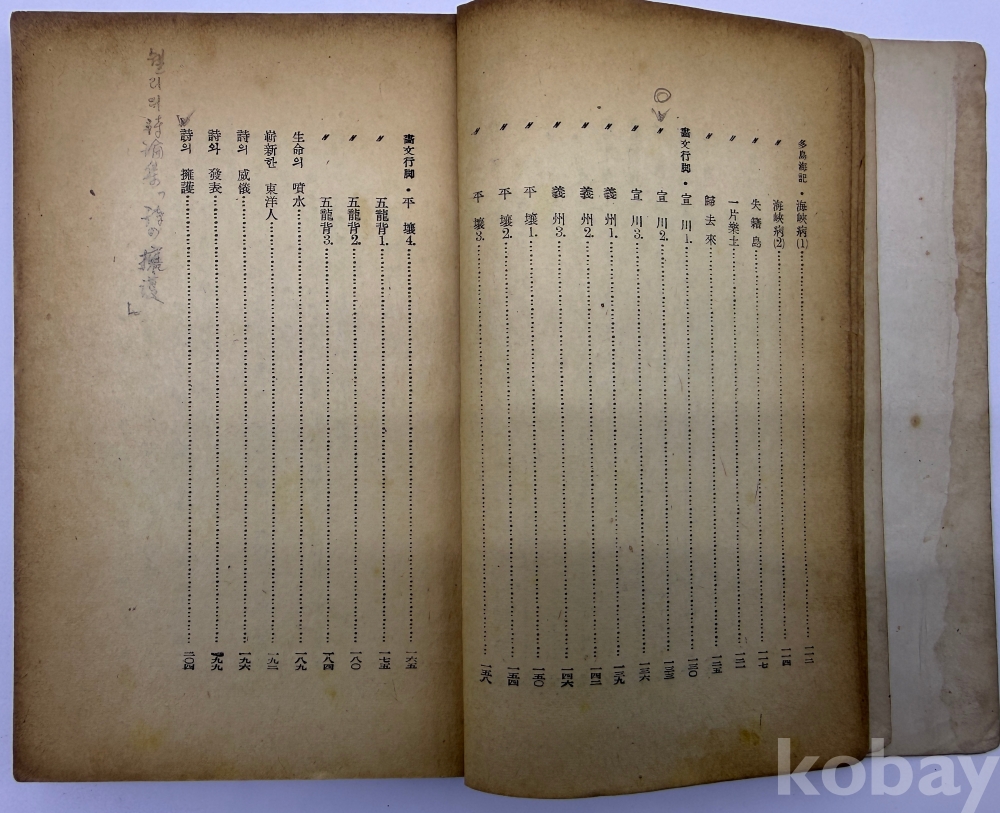 多島海記・海峽病(1)……一一二
〃 海峽病(2)……一一四
〃 失籍島……一一七
〃 一片樂土……一二一
〃 歸去來……一二五
畵文行脚・宣川1.……一三〇
〃 宣川2.……一三三
〃 宣川3.……一三六
〃 義州1.……一三九
〃 義州2.……一四二
〃 義州3.……一四六
〃 平壤1.……一五〇
〃 平壤2.……一五四
〃 平壤3.……一五八
畵文行脚・平壤4.……一六五
〃 五龍背1.……一七五
〃 五龍背2.……一八〇
〃 五龍背3.……一八四
生命의 噴水……一八九
嶄新한 東洋人……一九二
詩의 威儀……一九六
詩와 發表……一九九
詩의 擁護……二〇四
詩論集「詩의 擁護」
kobay